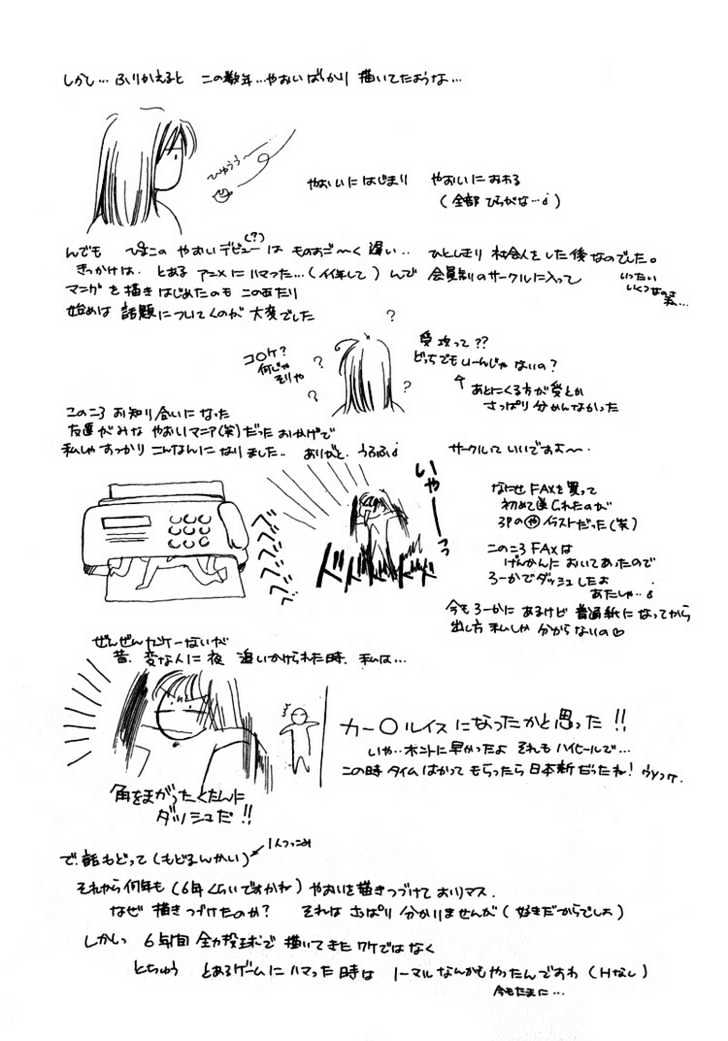 しかし… ふりかえると この数年…やおいばっかり 描いてたような…
ひゅうう〜
やおいにはじまり やおいにおわる
(全部 ひらがな…♩)
んでも ぴまこの やおいデビュー(?)は ものすご〜く遅い.. ひとしきり 社会人をした後なのでした。
きっかけは. とある アニメにハマった…(イイ年して) んで 会員制のサークルに入って
いったい
いくつなのさ
私…
マンガを描きはじめたのも このあたり
始めは 話題についてくのが 大変でした
?
コ○ケ?
何じゃ
そりゃ
?
?
?
受攻って??
どっちでもいーんじゃないの?
↑
あとにくる方が受とか
さっぱり分かんなかった
このころ お知り合いになった
友達がみな やおいマニア(笑)だったおかげで
私しゃ すっかり こんなんに なりました.. ありがと. うるうる♩
サークルっていいですよ〜.
いやーーっ
ベベベベベ
ドドドドドド
なにせ FAXを買って
初めて送られたのが
3Pの㋳イラストだった(笑)
このころ FAXは
げんかんに おいてあったので
ろーかでダッシュしたよ
あたしゃ..♩
今もろーかに あるけど 普通紙になってから
出し方 私しか 分からないの♡
ぜんぜんカンケーないが
昔. 変な人に 夜 追いかけられた時. 私は…
カー○ルイスになったかと思った!!
いや..ホントに早かったよ それもハイヒールで…
この時 タイムはかって もらったら 日本新だったね! ウソつけ.
角をまがったとたんに
ダッシュだ!!
1人つっこみ
で. 話もどって(もどるんかい)
それから何年も (6年くらいですかね) やおいを描きつづけて おりマス.
なぜ 描きつづけたのか? それは さっぱり 分かりませんが (好きだからでしょ)
しかしっ 6年間 全力投球で 描いてきたワケではなく
とちゅう とあるゲームにハマった時は ノーマルなんかもやったんですわ (Hなし)
今もたまに…